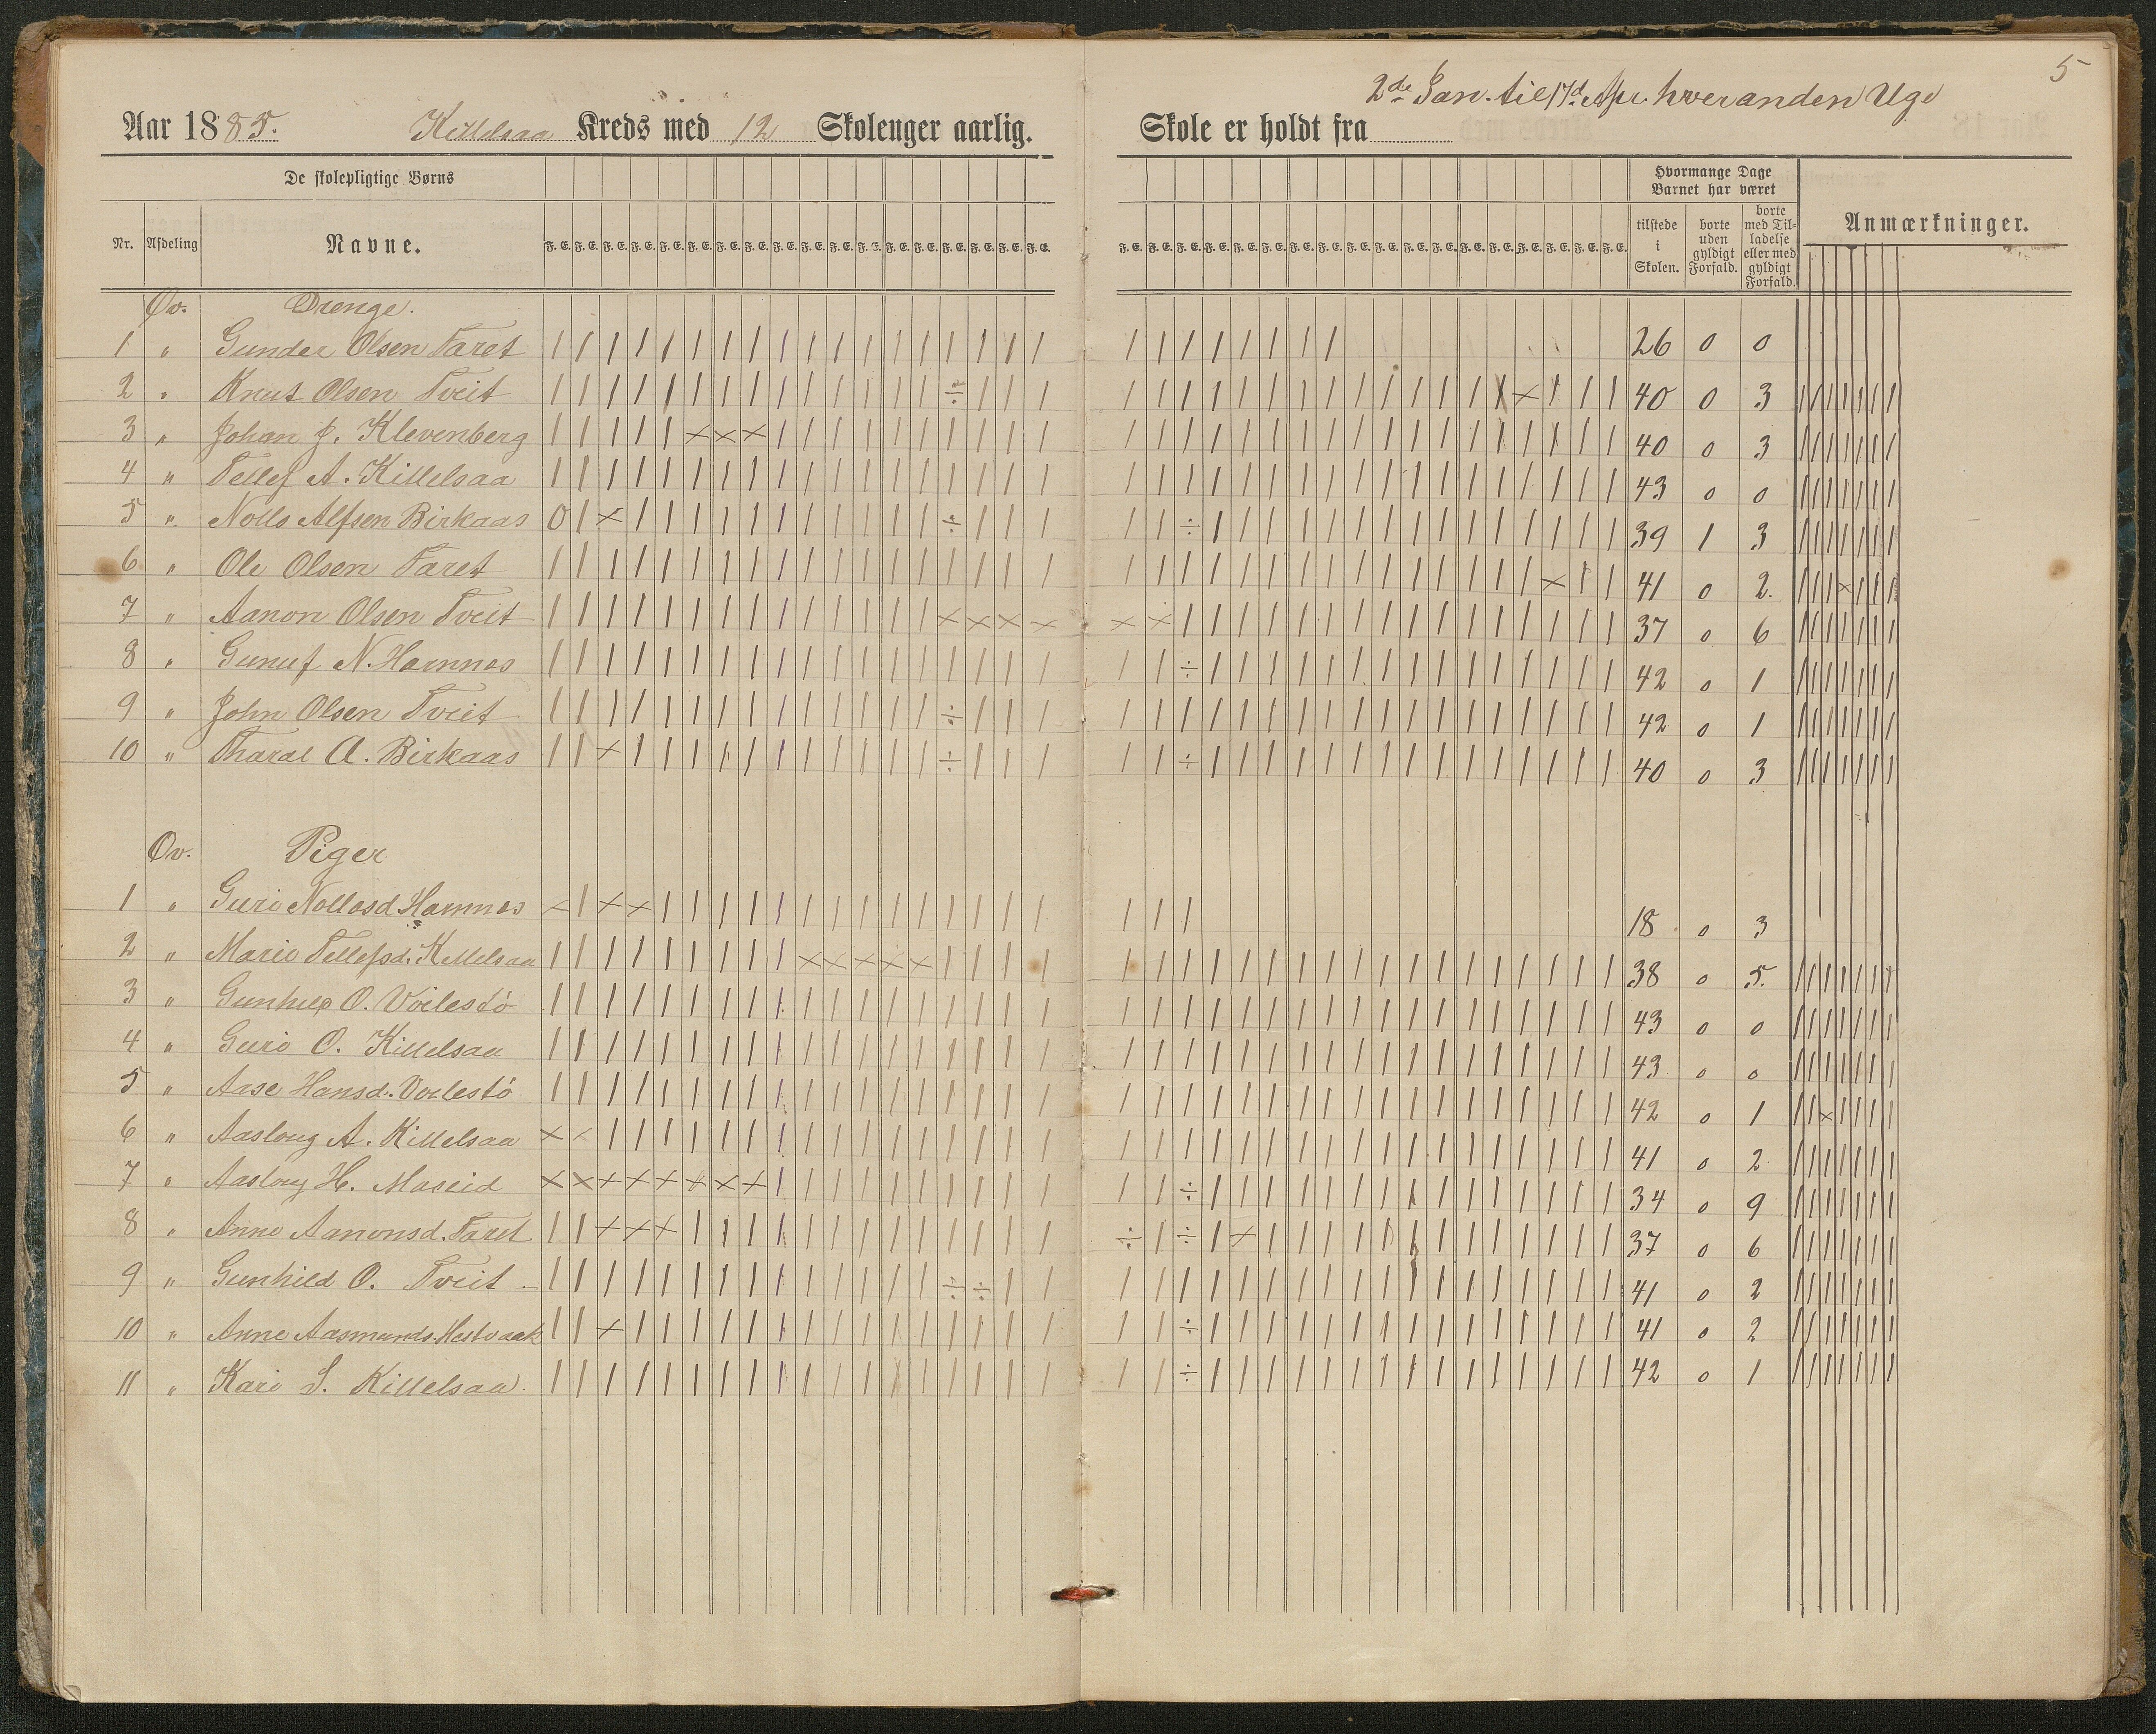 5
2de Jan. til 17d Apr. hveranden Uge
Aar 1885. Killelsaa Kreds med 12 Skoleuger aarlig. Skole er holdt fra
De skolepligtige Børns
Hvormange Dage Barnet har været
Nr. Afdeling Navne. F. E. F. E. F. E. F. E. F. E. F. E. F. E. F. E. F. E. F. E. F. E. F. E. F. E. F. E. F. E. F. E. F. E. F. E.
F. E. F. E. F. E. F. E. F. E. F. E. F. E. F. E. F. E. F. E. F. E. F. E. F. E. F. E. F. E. F. E. F. E. F. E.
tilstede i Skolen. borte uden gyldigt Forfald. borte med Tilladelse eller med gyldigt Forfald. Anmærkninger.
Øv. Drenge.
1 " Gunder Olsen Taret 26 0 0
2 " Knut Olsen Tveit 40 0 3
3 " Johan J. Klevenberg 40 0 3
4 " Tellef A. Killelsaa 43 0 0
5 " Nolls Alfsen Birkaas 39 1 3
6 " Ole Olsen Taret 41 0 2.
7 " Aanon Olsen Tveit 37 0 6
8 " Gunuf N. Hamnes 42 0 1
9 " John Olsen Tveit 42 0 1
10 " Tharal A. Birkaas 40 0 3
Øv. Piger
1 " Guri Nollosd Hamnes 18 0 3
2 " Marie Tellefsd. Killelsaa 38 0 5.
3 " Gunhild O. Voilestö 43 0 0
4 " Guri O. Killelsaa 43 0 0
5 " Aase Hansd. Voilestö 42 0 1
6 " Aasloug A. Killelsaa 41 0 2
7 " Aasloug H. Maseid 34 0 9
8 " Anne Aanonsd. Taret 37 0 6
9 " Gunhild O. Tveit 41 0 2
10 " Anne Aasmunds. 41 0 2
11 " Kari S. Killelsaa. 42 0 1